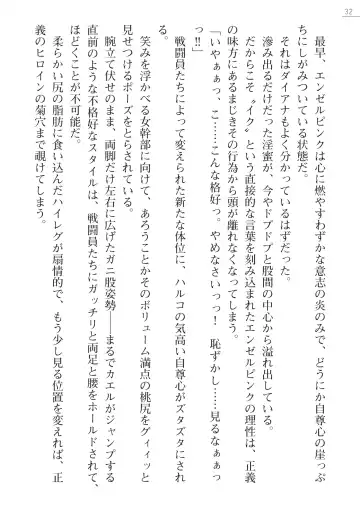 32
　最早、エンゼルピンクは心に燃やすわずかな意志の炎のみで、どうにか自尊心の崖っぷ
ちにしがみついている状態だ。
　それはダイアナもよく分かっているはずだった。
　滲み出るだけだった淫蜜が、今やドプドプと股間の中心から溢れ出している。
　だから〝イク〟という直接的な言葉を刻み込まれたエンゼルピンクの理性は、正義
の味方にあるまじきその行為から頭が離れなくなってしまう。
「いやぁぁっ、こ……こんな格好っ。やめなさいっっ！　恥ずかし……見るなぁぁっ
っ!!」
　戦闘員たちによって変えられた新たな体位に、ハルコの気高い自尊心がズタズタにされ
る。
　笑みを浮かべる女幹部に向けて、あろうことかそのボリューム満点の桃尻をグィィッと
見せつけるポーズをとらされている。
　腕立て伏せのまま、両脚だけ左右に広げたガニ股姿勢――まるでカエルがジャンプする
直前のような不格好なスタイルは、戦闘員たちにガッチリと両足と腰をホールドされて、
ほどくことが不可能だ。
　柔らかい尻の脂肪に食い込んだハイレグが扇情的で、もう少し見る位置を変えれば、正
義のヒロインの菊穴まで覗けてしまう。